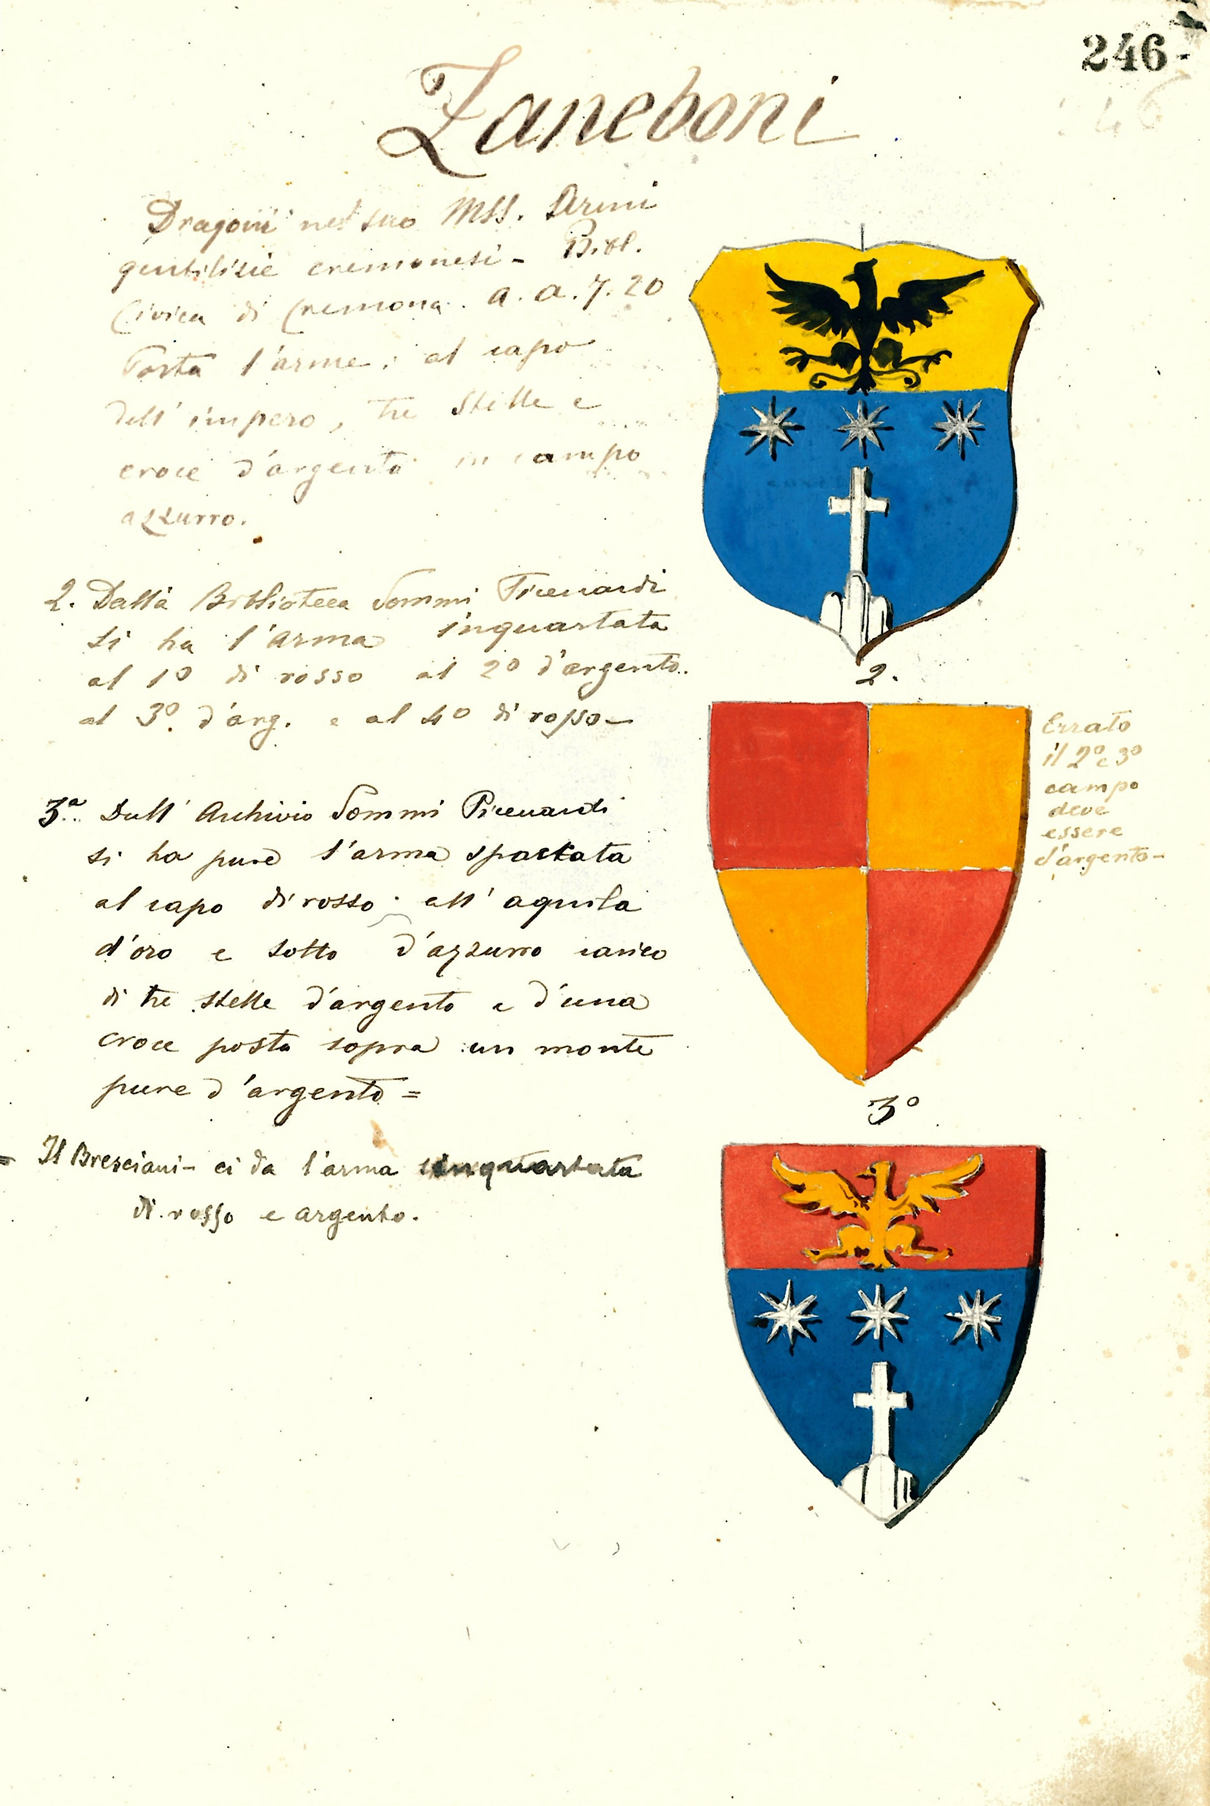 246-
Zaneboni
Dragoni nel suo MSS. Armi
gentilizie cremonesi - Bibl.
Civica di Cremona. a. a. 7. 20
Porta l'arme: al capo
dell'impero, tre stelle e
croce d'argento in campo
azzurro.
2. Dalla Biblioteca Sommi Picenardi
si ha l'arma inquartata
al 1º di rosso al 2º d'argento.
al 3º d'arg. e al 4º di rosso-
3ª. Dall' Archivio Sommi Picenardi
si ha pure l'arma spaccata
al capo di rosso all' aquila
d'oro e sotto d'azzurro carico
di tre stelle d'argento e d'una
croce posta sopra un monte
pure d'argento =
- Il Bresciani - ci da l'arma inquartata
di rosso e argento.
2.
Errato
il 2º e 3º
campo
deve
essere
d'argento-
3º